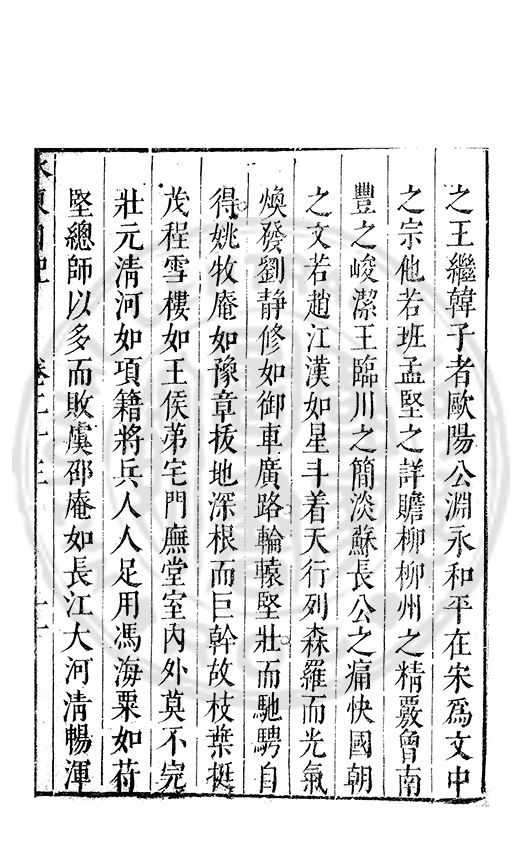 之王繼韓子者歐陽公淵永和平在宋爲文中
之宗他若班孟堅之詳贍柳柳州之精覈曾南
豐之峻潔王臨川之簡淡蘇長公之痛快國朝
之文若趙江漢如星斗着天行列森羅而光氣
煥發劉静修如御車廣路輪轅堅壯而馳騁自
得姚牧庵如豫章拔地深根而巨幹故枝葉挺
茂程雪樓如王侯第宅門廡堂室內外莫不完
壯元清河如項籍將兵人人足用馮海粟如苻
堅總師以多而敗虞邵庵如長江大河清暢渾